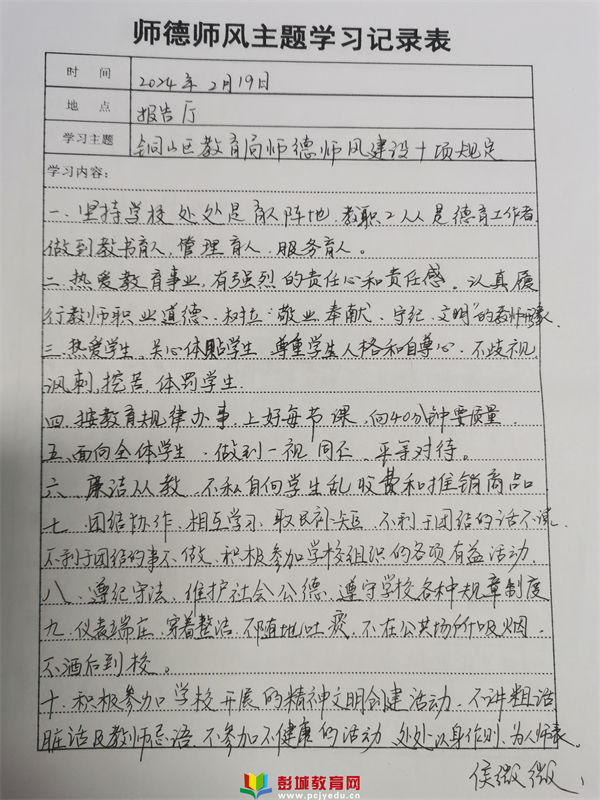 师德师风主题学习记录表
时 间 2024年2月19日
地 点 报告厅
学习主题 铜山区教育局师德师风建设十项规定
学习内容:
一、坚持学校处处是育人阵地,教职工人人是德育工作者,
做到教书育人,管理育人,服务育人。
二、热爱教育事业,有强烈的责任心和责任感。认真履
行教师职业道德、树立"敬业、奉献、守纪、文明"的教师形象。
三、热爱学生、关心体贴学生、尊重学生人格和自尊心、不歧视、
讽刺,挖苦,体罚学生.
四、按教育规律办事,上好每节课,向40分钟要质量.
五、面向全体学生,做到一视同仁、平等对待。
六、廉洁从教、不私自向学生乱收费和推销商品
七、团结协作、相互学习、取长补短、不利于团结的话不说,
不利于团结的事不做、积极参加学校组织的各项有益活动.
八、遵纪守法、维护社会公德、遵守学校各种规章制度
九、仪表端庄、穿着整洁、不随地吐痰、不在公共场所吸烟.
不酒后到校。
十、积极参加学校开展的精神文明创建活动.不讲粗话.
脏话及教师忌语.不参加不健康的活动.处处以身作则、为人师表.
侯微微
彭城教育网
www.pcjyedu.cn